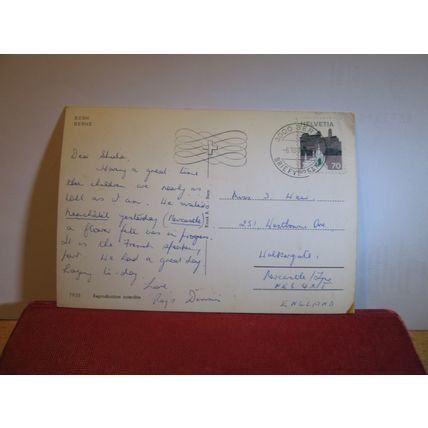 BERN
BERNE
Dear Sheila,
Having a great time
the children are nearly as
tall as I am. We visited
Neuchâtel yesterday (Newcastle)
a flower fete was in progress.
It is the French speaking
part. We had a great day
today.
Love
Dennis
7935
Reproduction interdite
3000 BERN
BRIEFVERSAND
HELVETIA
70
Miss S.
251,
Walkergate,
Newcastle/Tyne
NE6
ENGLAND